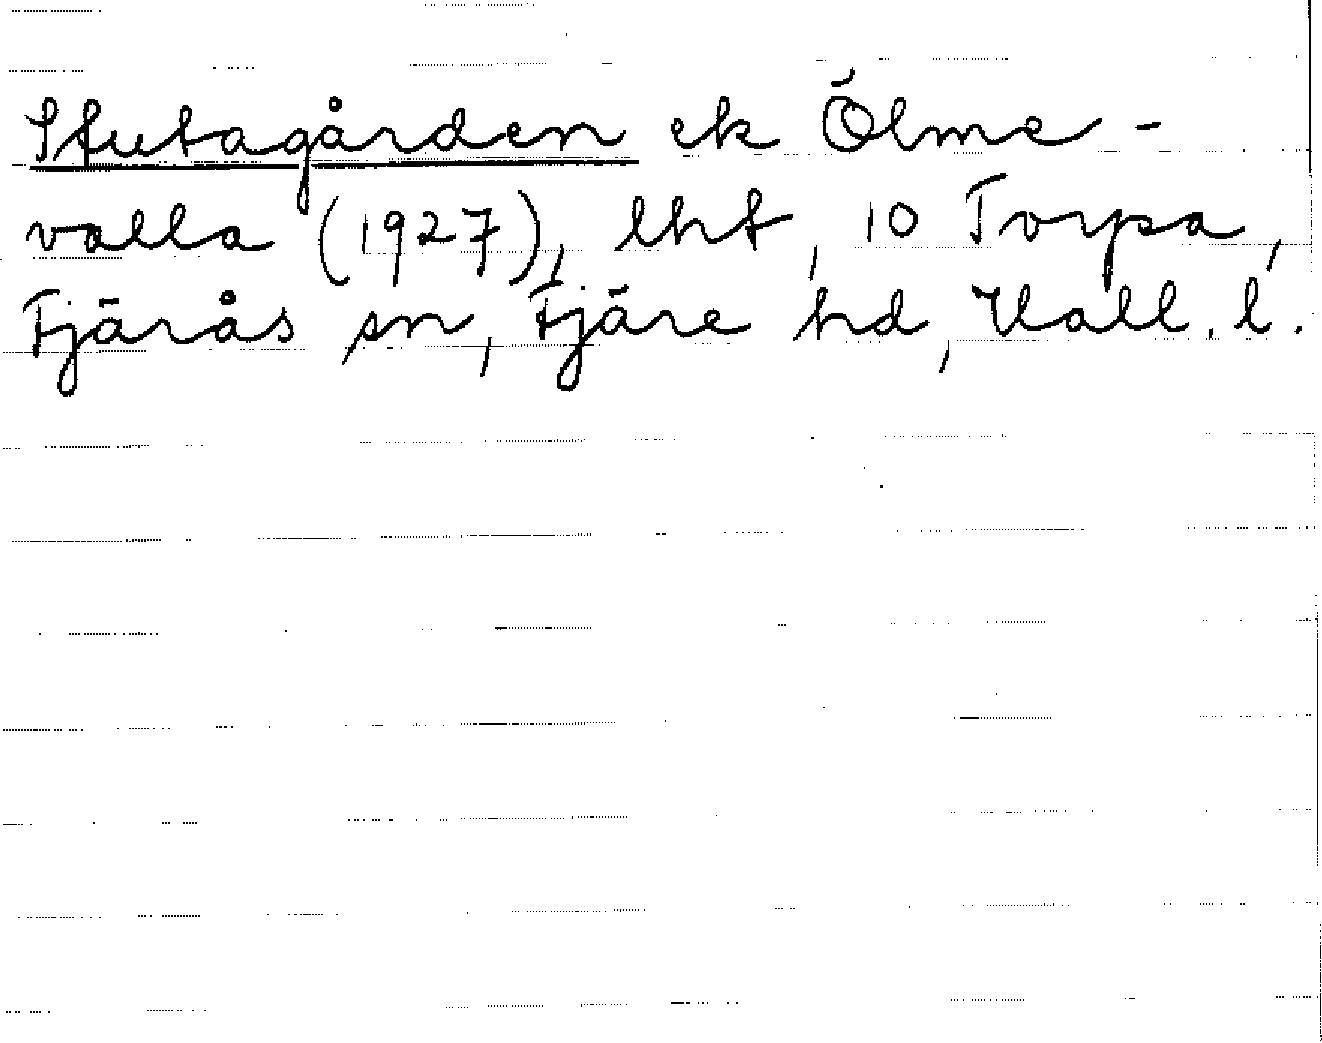 Stutagården ek Ölme-
valla (1927), lht, 10 Torpa,
Fjärås sn, Fjäre hd, Hall. l.